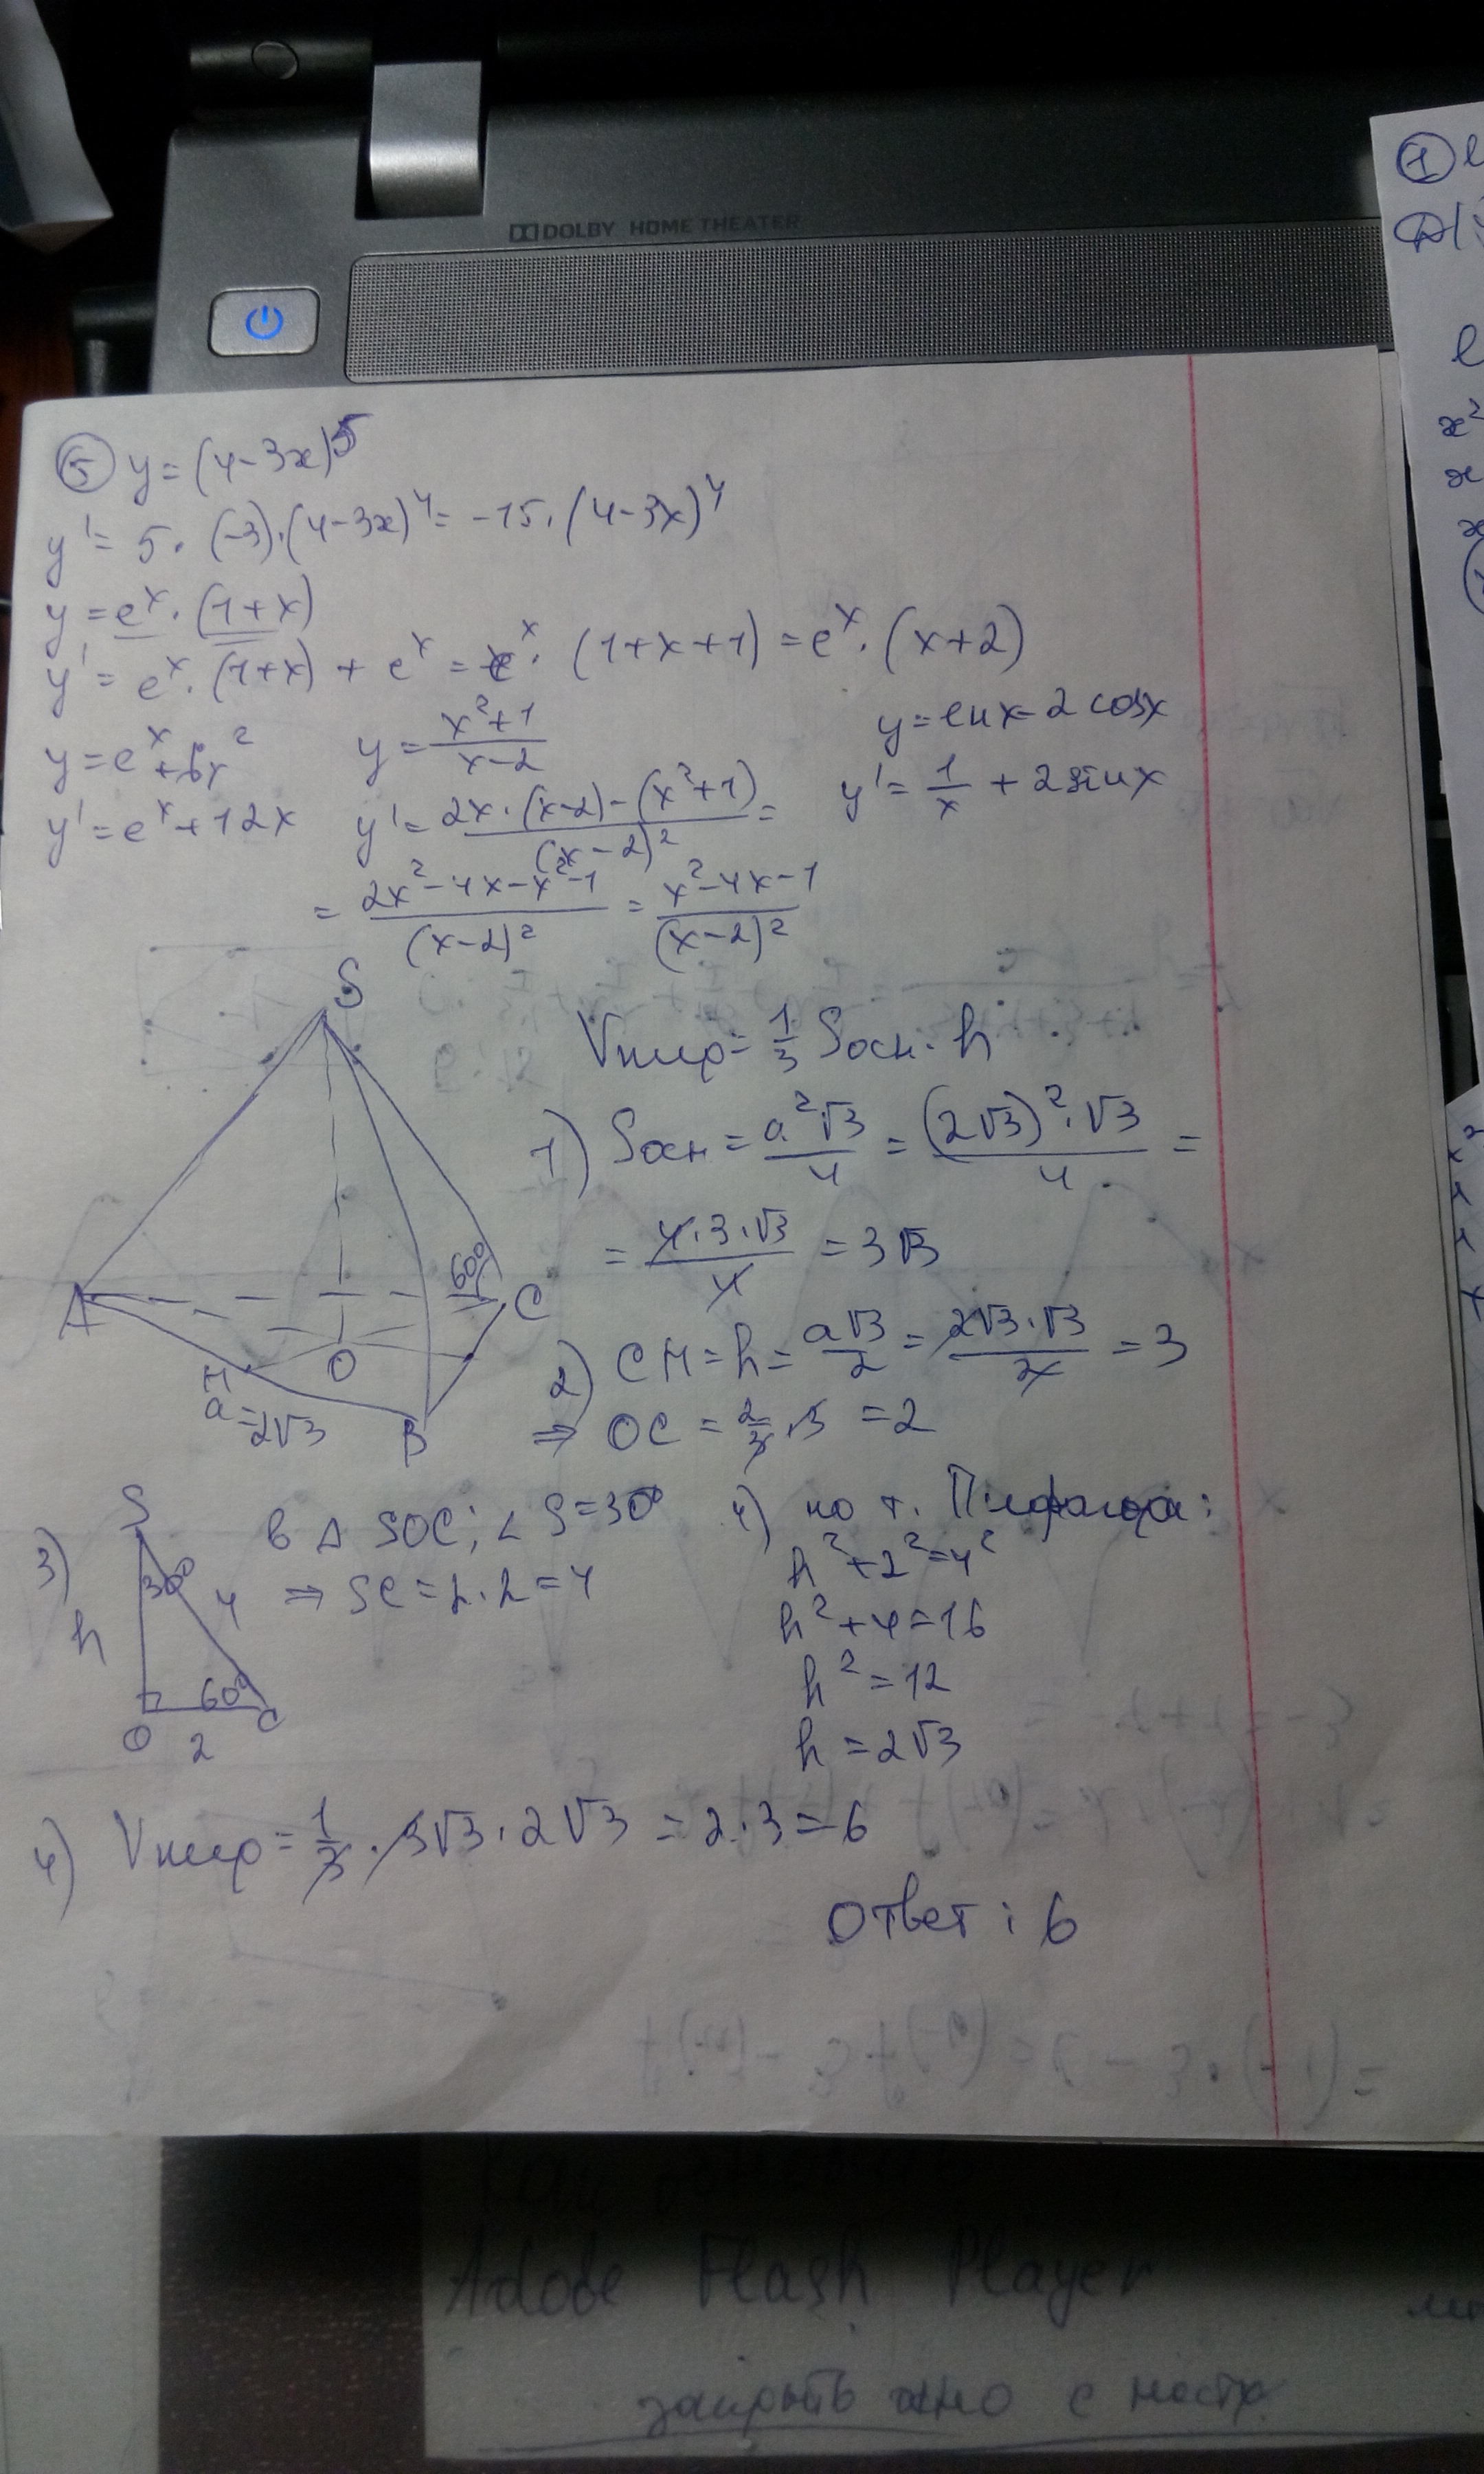 DOLBY HOME THEATER
⑤ y = (4-3x)^5
y' = 5 · (-3) · (4-3x)^4 = -15 · (4-3x)^4
y = e^x · (1+x)
y' = e^x · (1+x) + e^x = e^x · (1+x+1) = e^x · (x+2)
y = e^x + 6x^2
y' = e^x + 12x
y = (x^2+1)/(x-2)
y' = (2x · (x-2) - (x^2+1))/(x-2)^2 =
= (2x^2-4x-x^2-1)/(x-2)^2 = (x^2-4x-1)/(x-2)^2
y = ln x - 2 cos x
y' = 1/x + 2 sin x
S
A
B
C
O
H
60°
a = 2√3
Vпир = 1/3 Sосн · h
1) Sосн = a^2√3/4 = (2√3)^2 · √3/4 =
= 4 · 3 · √3/4 = 3√3
2) CH = h = a√3/2 = 2√3 · √3/2 = 3
⇒ OC = 2/3 · 3 = 2
3) S
30°
4
h
60°
O
C
2
в Δ SOC; ∠ S = 30°
⇒ SC = 2 · 2 = 4
4) по т. Пифагора:
h^2 + 2^2 = 4^2
h^2 + 4 = 16
h^2 = 12
h = 2√3
4) Vпир = 1/3 · 3√3 · 2√3 = 2 · 3 = 6
Ответ: 6
①
Adobe Flash Player
закрыть окно с настр